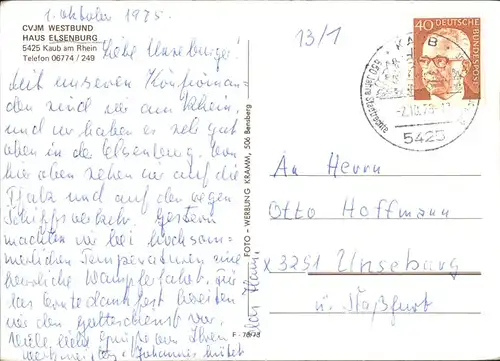 1. Oktober 1975.
CVJM WESTBUND
HAUS ELSENBURG
5425 Kaub am Rhein
Telefon 06774 / 249
Liebe Unseburger!
Mit unseren Konfirman-
den sind wir am Rhein,
und wir haben es sehr gut
oben in der Elsenburg. Von
hier oben sehen wir auf die
Pfalz und auf den regen
Schiffsverkehr. Gestern
machten wir bei hochsom-
merlichen Temperaturen eine
herrliche Dampferfahrt. Für
das Erntedankfest bereiten
wir den Gottesdienst vor.
Viele liebe Grüße von Ihren
Johannes
FOTO - WERBUNG KRAMM, 506 Bensberg
F - 78/73
13/1
40 DEUTSCHE BUNDESPOST
KAUB
-2.10.75-12
5425
An Herrn
Otto Hoffmann
x 3251 Unseburg
ü. Staßfurt